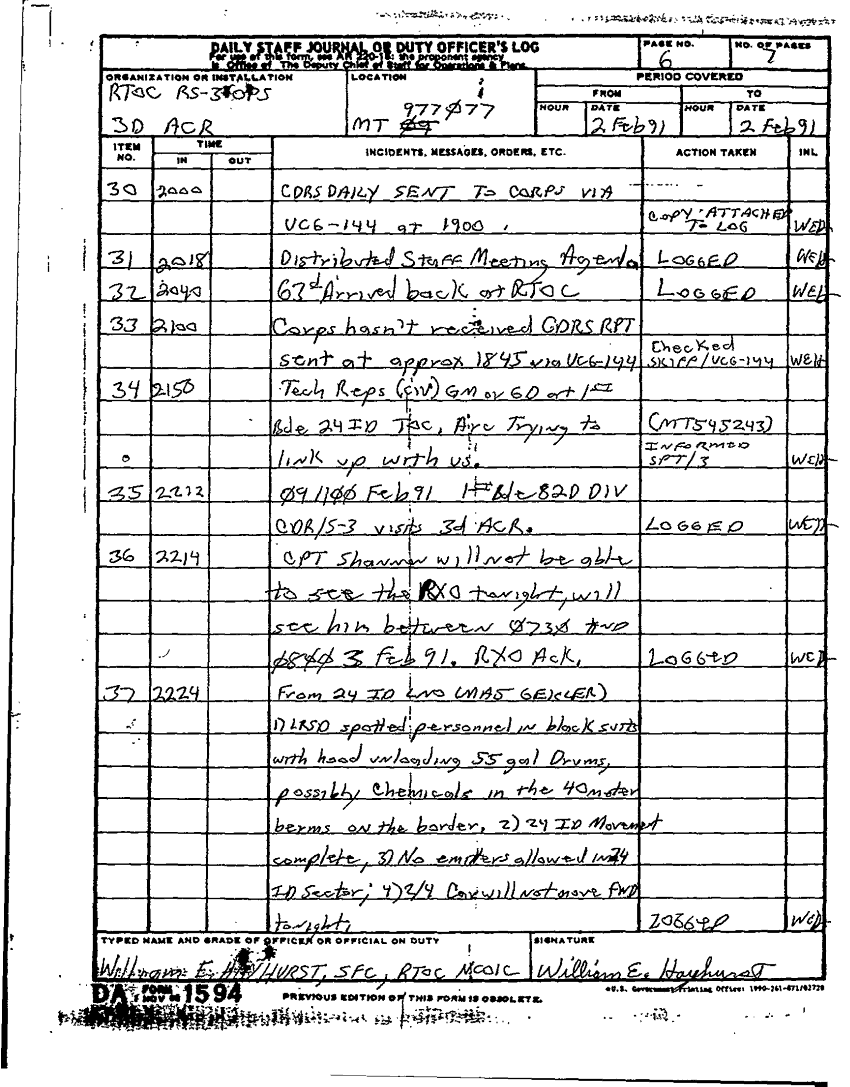 DAILY STAFF JOURNAL OR DUTY OFFICER'S LOG
For use of this form, see AR 220-15; the proponent agency
is Office of The Deputy Chief of Staff for Operations & Plans.
PAGE NO.
6
NO. OF PAGES
7
ORGANIZATION OR INSTALLATION
RTOC RS-3 OPS
3D ACR
LOCATION
977077
MT
PERIOD COVERED
FROM TO
HOUR DATE HOUR DATE
2 Feb 91 2 Feb 91
ITEM NO. TIME INCIDENTS, MESSAGES, ORDERS, ETC. ACTION TAKEN INL
IN OUT
30 2000 CDRS DAILY SENT TO CORPS VIA
VCG-144 at 1900. COPY ATTACHED TO LOG WEH
31 2018 Distributed Staff Meeting Agenda LOGGED WEH
32 2040 63rd Arrived back at RTOC LOGGED WEH
33 2100 Corps hasn't received CDRS RPT
sent at approx 1845 via VCG-144 Checked SKIPP/VCG-144 WEH
34 2150 Tech Reps (civ) GM or GD at 1st
Bde 24 ID TOC, Are Trying to (MT545243)
link up with us. INFORMED SPT/3 WEH
35 2212 091100 Feb 91 1st Bde 82D DIV
CDR/S-3 visits 3d ACR. LOGGED WEH
36 2214 CPT Shannon will not be able
to see the RXO tonight, will
see him between 0730 AND
0800 3 Feb 91. RXO Ack. LOGGED WEH
37 2224 From 24 ID LNO (MAJ GEICLER)
1) LRSD spotted personnel in black suits
with hood unloading 55 gal Drums,
possibly Chemicals in the 40 meter
berms on the border. 2) 24 ID Movement
complete, 3) No emitters allowed in 24
ID Sector; 4) 2/4 Cav will not move FWD
tonight, LOGGED WEH
TYPED NAME AND GRADE OF OFFICER OR OFFICIAL ON DUTY
William E. HAYHURST, SFC, RTOC NCOIC
SIGNATURE
William E. Hayhurst
DA FORM 1594
PREVIOUS EDITION OF THIS FORM IS OBSOLETE.
*U.S. Government Printing Office: 1990-261-871/02728